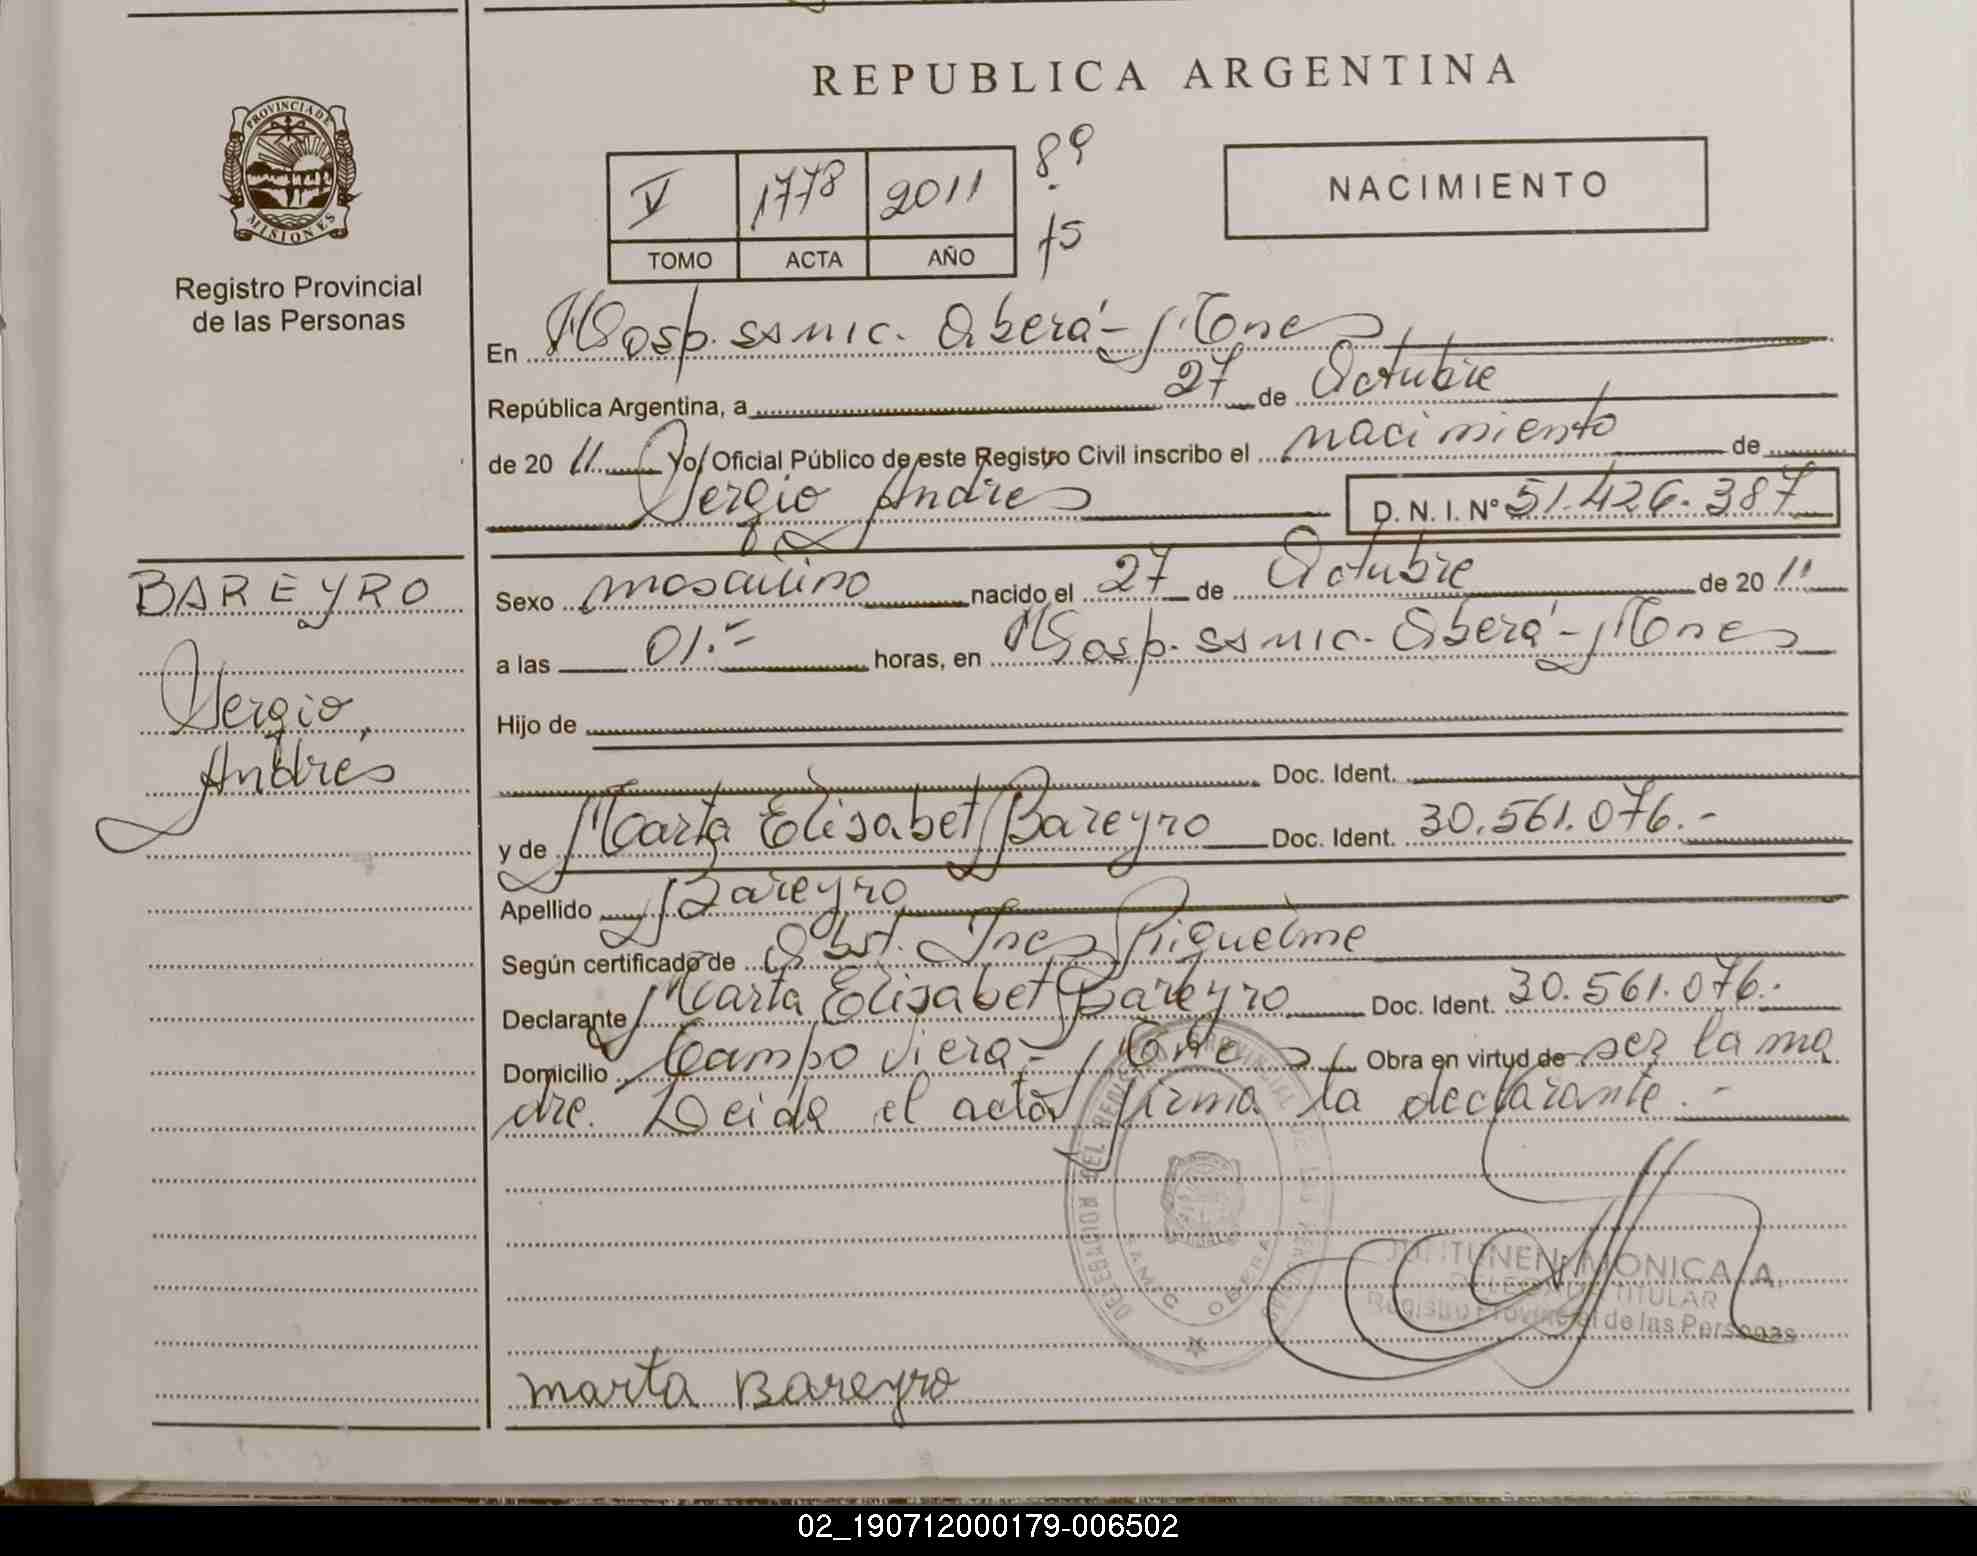 REPUBLICA ARGENTINA
PROVINCIA DE
MISIONES
Registro Provincial
de las Personas
V 1778 2011 8º
TOMO ACTA AÑO 15
NACIMIENTO
En Hosp. ssmic. Oberá - Mones
República Argentina, a 27 de Octubre
de 20 11 Yo, Oficial Público de este Registro Civil inscribo el nacimiento de
Sergio Andres D. N. I. Nº 51.426.387
BAREYRO
Sergio,
Andrés
Sexo masculino nacido el 27 de Octubre de 20 11
a las 01.- horas, en Hosp. ssmic. Oberá - Mones
Hijo de
Doc. Ident.
y de Marta Elisabet Bareyro Doc. Ident. 30.561.076.-
Apellido Bareyro
Según certificado de Obst. Ines Riquelme
Declarante Marta Elisabet Bareyro Doc. Ident. 30.561.076.-
Domicilio Campo Viera - Mones Obra en virtud de ser la ma
dre. Leida el acta firma la declarante.-
DELEGACION DEL REGISTRO PROVINCIAL DE LAS PERSONAS
SAMIC OBERA
MONICA A.
DELEGADA TITULAR
Registro Provincial de las Personas
marta Bareyro
02_190712000179-006502